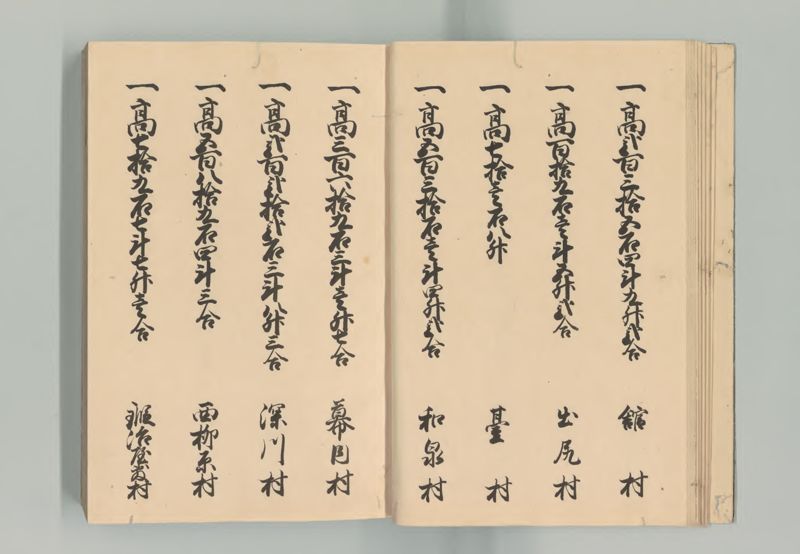 一高弐百三拾五石四斗九升弐合 舘村
一高百拾九石壱斗五升弐合 出尻村
一高七拾壱石八升 臺村
一高五百三拾石壱斗四升弐合 和泉村
一高三百六拾九石三斗壱升七合 幕内村
一高弐百弐拾弐石三斗八升三合 深川村
一高五百八拾五石四斗三合 西柳原村
一高七拾九石七斗七升壱合 鍛冶屋敷村